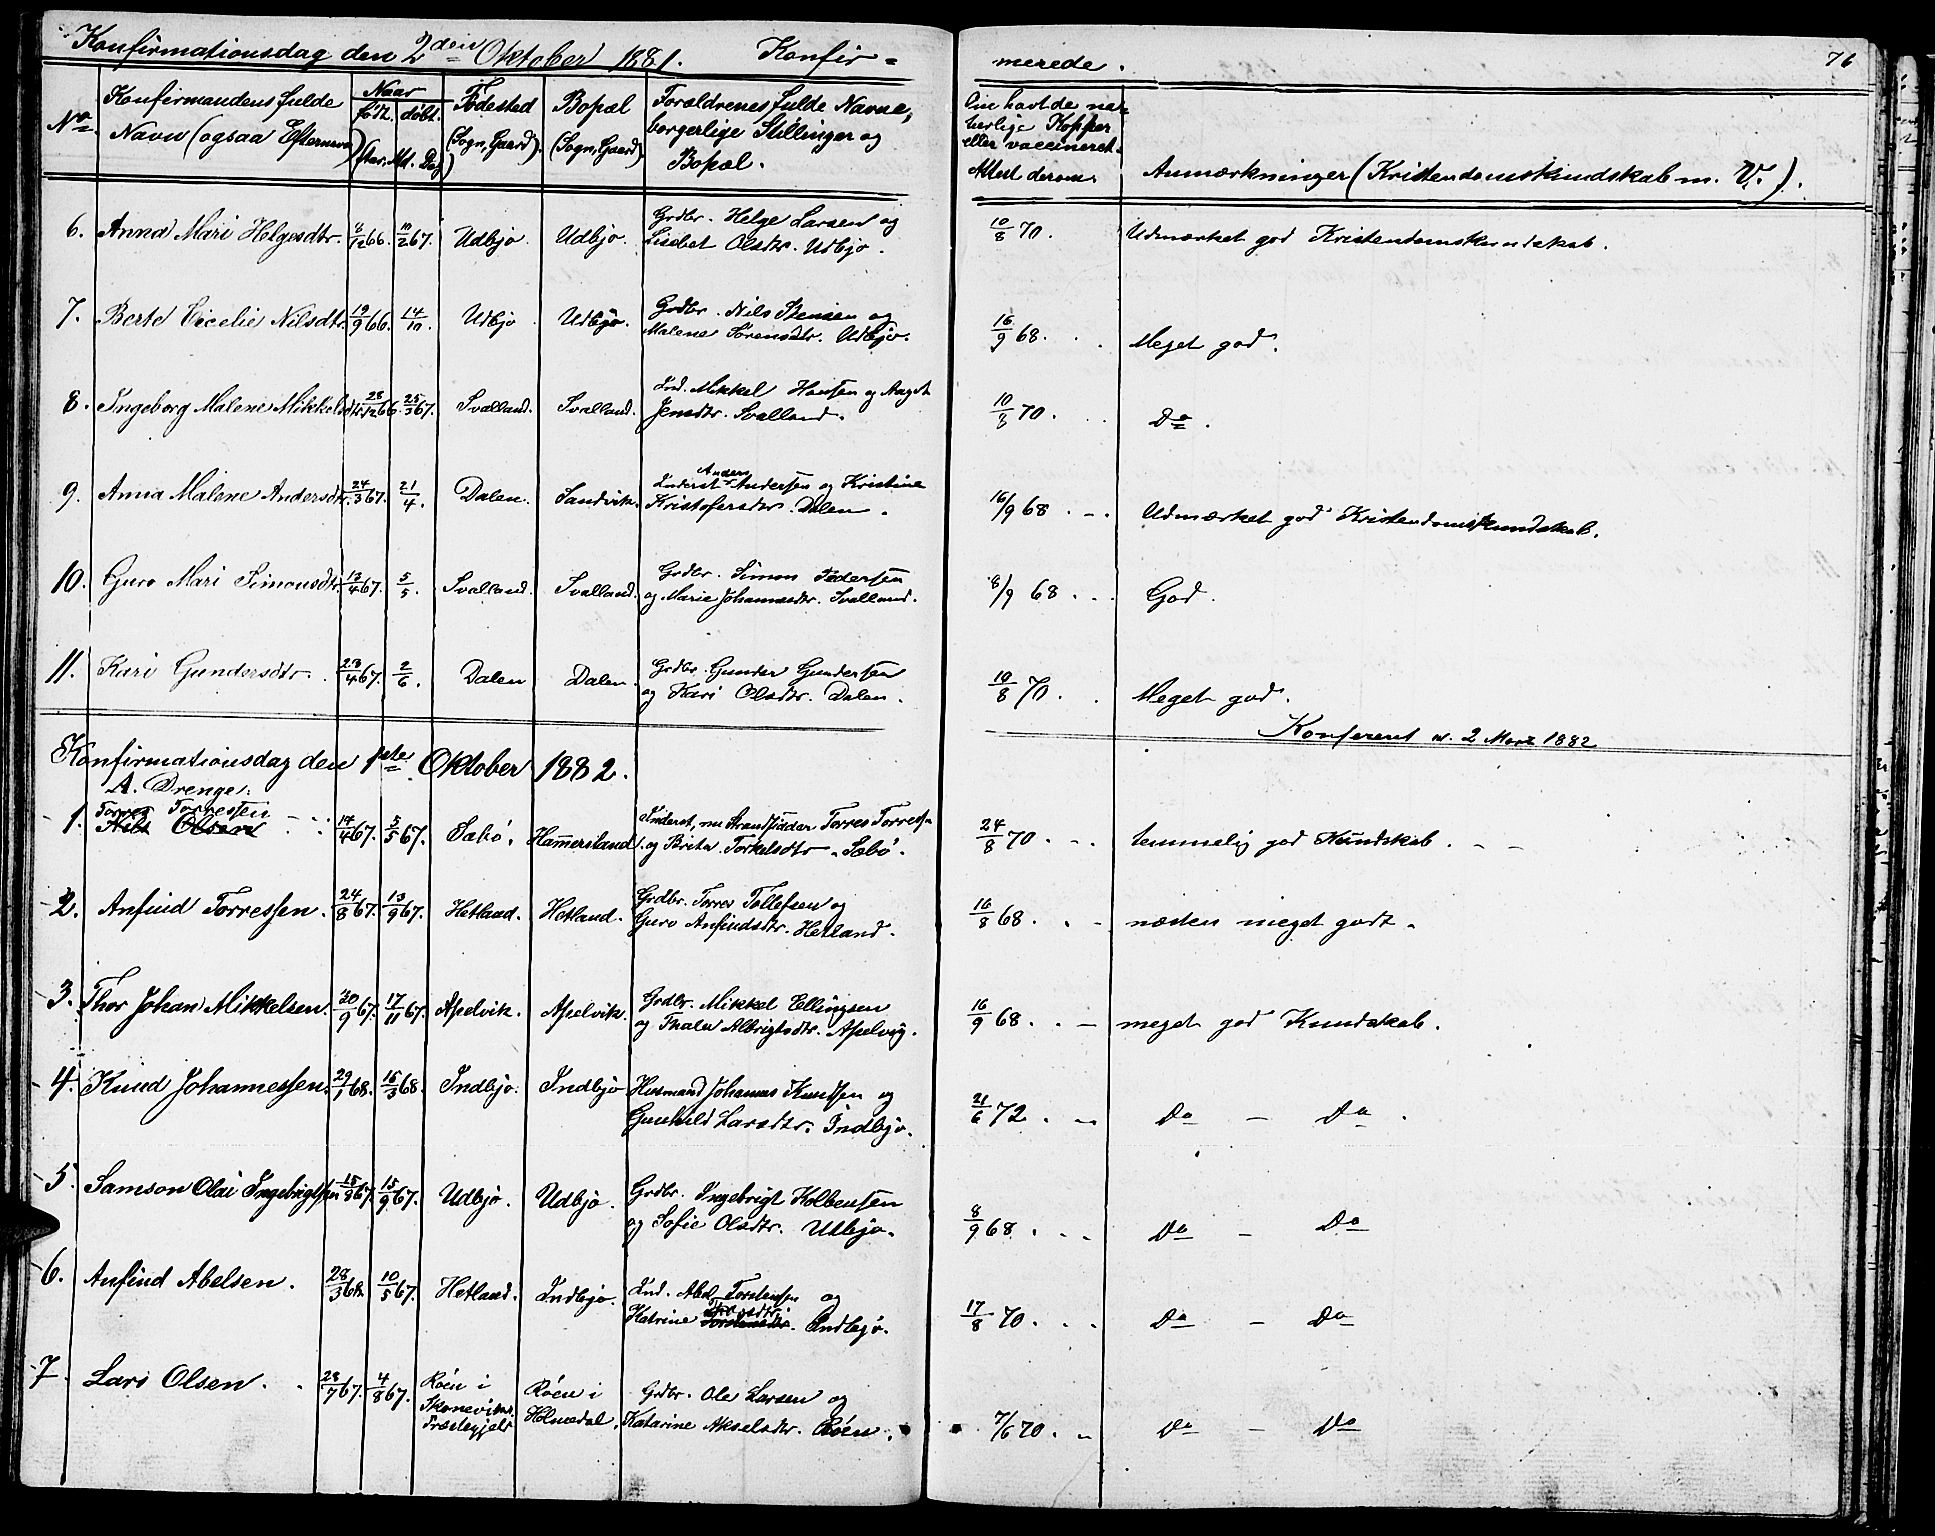 Konfirmationsdag den 2den Oktober 1881. Konfir-
merede. 76
No Konfirmandens fulde Navn (ogsaa Efternavn) Naar født. døbt. (Aar, Md. Dag) Fødested (Sogn, Gaard). Bopæl (Sogn, Gaard) Forældrenes fulde Navne, borgerlige Stillinger og Bopæl. Om havt de naturlige Kopper eller vaccineret. Attest derom. Anmærkninger (Kristendomskundskab m. V.).
6. Anna Mari Helgesdtr. 8/12 66. 10/2 67. Udbjo Udbjo. Grdbr. Helge Larsen og 10/8 70. Udmærket god Kristendomskundskab.
Lisebet Olsdtr. Udbjo.
7. Berte Cicelie Nilsdtr. 19/9 66. 14/10. Udbjo Udbjo. Grdbr. Nils Stensen og 16/9 68. Meget god.
Malene Sørensdtr. Udbjo.
8. Ingeborg Malene Mikkelsdtr. 28/12 66. 25/3 67. Svalland. Svalland. Ind. Mikkel Hansen og Aagot 10/8 70. Do.
Jensdtr. Svalland.
9. Anna Malene Andersdtr. 24/3 67. 21/4. Dalen. Sandvik. Inderst Anders Andersen og Kristine 16/9 68. Udmærket god Kristendomskundskab.
Kristofersdtr. Dalen.
10. Guro Mari Simonsdtr. 13/4 67. 5/5. Svalland. Svalland. Grdbr. Simon Pedersen 8/9 68. God.
og Marie Johannesdtr. Svalland.
11. Kari Gundersdtr. 28/4 67. 2/6. Dalen Dalen. Grdbr. Gunder Gundersen 10/8 70. Meget god.
og Kari Olsdtr. Dalen.
Konfereret d. 2 Marz 1882
Konfirmationsdag den 1ste Oktober 1882.
A. Drenge:
1. Torres Torressen 14/4 67. 5/5 67. Sæbø. Hammersland Inderst, nu Strandsidder Torres Torressen 24/8 70. temmelig god Kundskab.
Nils Olsen og Brita Torkelsdtr. Sæbø.
2. Anfind Torressen. 24/8 67. 13/9 67. Hetland. Hetland. Grdbr. Torres Tollefsen og 16/8 68. næsten meget godt.
Guro Anfindsdtr. Hetland.
3. Thor Johan Mikkelsen. 20/9 67. 17/11 67. Apelvik. Apelvik. Grdbr. Mikkel Ellingsen 16/9 68. meget god Kundskab.
og Thale Albrigtsdtr. Apelvig.
4. Knud Johannessen. 29/1 68. 15/3 68. Indbjo. Indbjo Husmand Johannes Knudsen og 21/6 72. Do - Do.
Gunhild Larsdtr. Indbjo.
5. Samson Olai Ingebrigtsen 15/8 67. 15/9 67. Udbjo. Udbjo. Grdbr. Ingebrigt Kolbensen 8/9 68. Do - Do
og Sofie Olsdtr. Udbjo.
6. Anfind Abelsen. 28/3 68. 10/5 67. Hetland. Indbjo. Ind. Abel Torstensen og 17/8 70. Do - Do
Katrine Torstensdtr. Indbjo.
7. Lars Olsen. 28/7 67. 4/8 67. Røen i Skonevikes Præstegjeld Røen i Holmedal. Grdbr. Ole Larsen og 7/6 70. Do - Do
Katarine Akselsdtr. Røen.